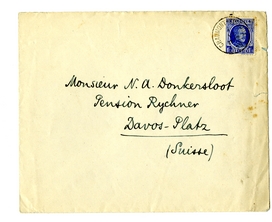 Monsieur N. A. Donkersloot
Pension Rychner
Davos-Platz
(Suisse)